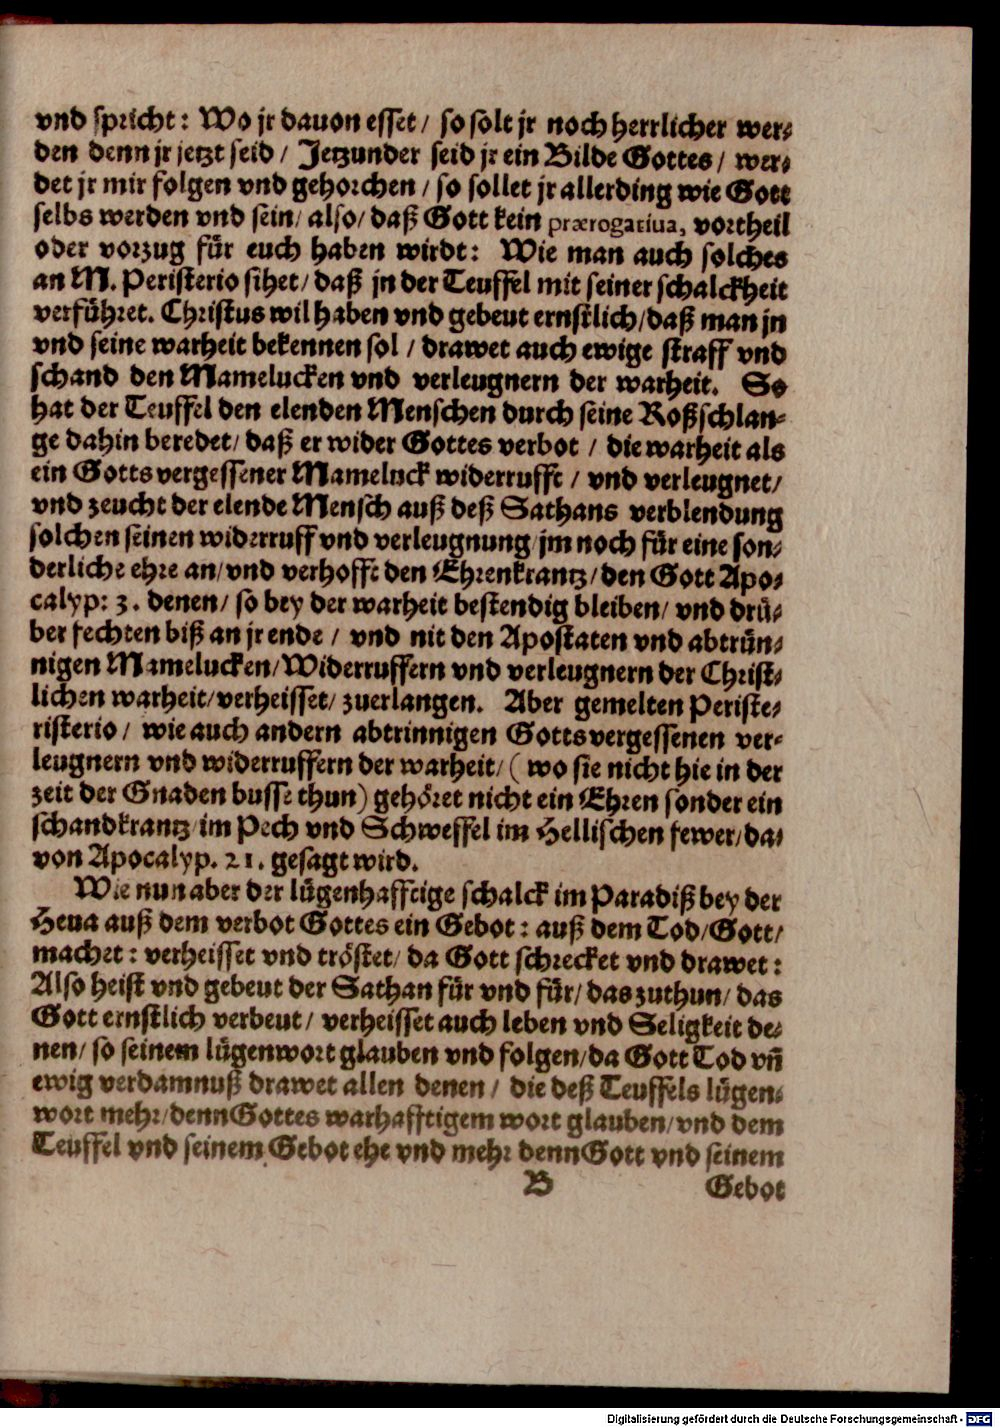 vnd spricht: Wo jr dauon esset/ so solt jr noch herrlicher wer⸗
den denn jr jetzt seid/ Jetzunder seid jr ein Bilde Gottes/ wer⸗
det jr mir folgen vnd gehorchen/ so sollet jr allerding wie Gott
selbs werden vnd sein/ also/ daß Gott kein prærogatiua, vortheil
oder vorzug für euch haben wirdt: Wie man auch solches
an M. Peristerio sihet/ daß jn der Teuffel mit seiner schalckheit
verführet. Christus wil haben vnd gebeut ernstlich/ daß man jn
vnd seine warheit bekennen sol/ drawet auch ewige straff vnd
schand den Mamelucken vnd verleugnern der warheit. So
hat der Teuffel den elenden Menschen durch seine Roßschlan⸗
ge dahin beredet/ daß er wider Gottes verbot/ die warheit als
ein Gottsvergessener Mameluck widerrufft/ vnd verleugnet/
vnd zeucht der elende Mensch auß deß Sathans verblendung
solchen seinen widerruff vnd verleugnung jm noch für eine son⸗
derliche ehre an/ vnd verhofft den Ehrenkrantz/ den Gott Apo⸗
calyp: 3. denen/ so bey der warheit bestendig bleiben/ vnd drü⸗
ber fechten biß an jr ende/ vnd nit den Apostaten vnd abtrün⸗
nigen Mamelucken/ Widerruffern vnd verleugnern der Christ⸗
lichen warheit/ verheisset/ zuerlangen. Aber gemelten Periste⸗
risterio/ wie auch andern abtrinnigen Gottsvergessenen ver⸗
leugnern vnd widerruffern der warheit/ (wo sie nicht hie in der
zeit der Gnaden busse thun) gehöret nicht ein Ehren sonder ein
schandkrantz im Pech vnd Schweffel im Hellischen fewer/ da⸗
von Apocalyp. 21. gesagt wird.
Wie nun aber der lügenhafftige schalck im Paradiß bey der
Heua auß dem verbot Gottes ein Gebot: auß dem Tod/ Gott/
machet: verheisset vnd tröstet/ da Gott schrecket vnd drawet:
Also heist vnd gebeut der Sathan für vnd für/ das zuthun/ das
Gott ernstlich verbeut/ verheisset auch leben vnd Seligkeit de⸗
nen/ so seinem lügenwort glauben vnd folgen/ da Gott Tod vñ
ewig verdamnuß drawet allen denen/ die deß Teuffels lügen⸗
wort mehr/ denn Gottes warhafftigem wort glauben/ vnd dem
Teuffel vnd seinem Gebot ehe vnd mehr denn Gott vnd seinem
B Gebot
Digitalisierung gefördert durch die Deutsche Forschungsgemeinschaft - DFG